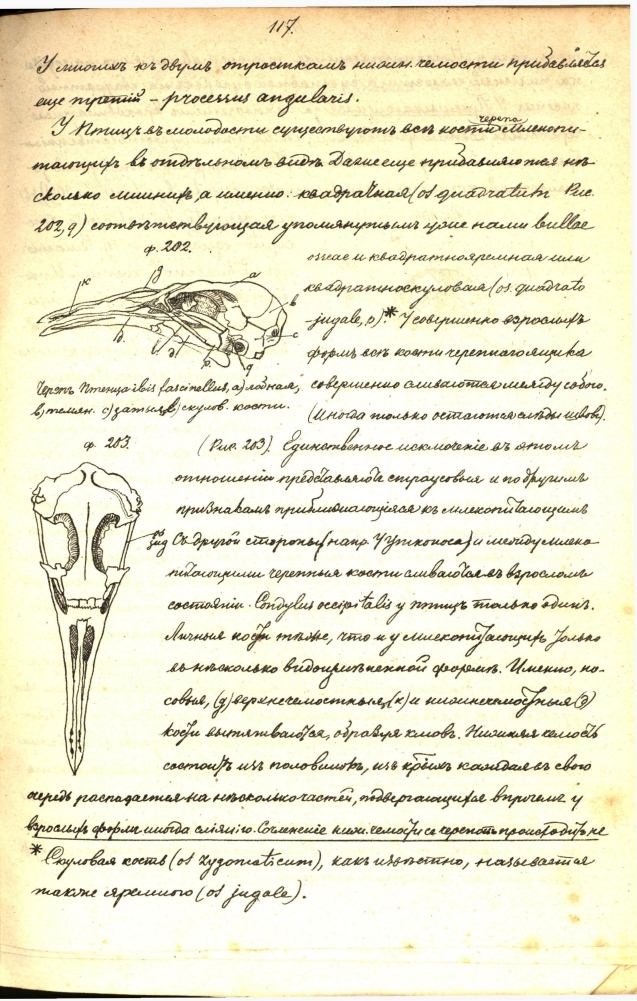 117.
У многихъ къ двумъ отросткамъ нижн. челюсти прибавляется
еще третій – processus angularis.
У Птицъ въ молодости существуютъ всѣ кости черепа млекопи-
тающихъ въ отдѣльномъ видѣ. Даже еще прибавляются нѣ-
сколько лишнихъ, а именно: квадратная (os quadratum Рис.
202, q) соотвѣтствующая упомянутымъ уже нами bullae
ф. 202.
osseae и квадратнояремная или
квадратноскуловая (os. quadrato
jugale, p).* У совершенно взрослыхъ
формъ всѣ кости черепнаго ящика
совершенно сливаются между собою.
(Иногда только остаются слѣды швовъ).
к
g
a
b
c
d
q
p
Черепъ Птенца ibis fascinellus, a) лобная,
b, темян. c) затыл. скулов. кости.
ф. 203.
(Рис. 203). Единственное исключеніе въ этомъ
отношеніи представляютъ страусовые и по другимъ
признакамъ приближающіяся къ млекопитающимъ
Съ другой стороны (напр. У Утконоса) и между млеко
питающими черепныя кости сливаются въ взросломъ
состояніи. Condylus occipitalis у птицъ только одинъ.
Личныя кости тѣже, что и у млекопитающихъ только
въ нѣсколько видоизмѣненной формѣ. Именно, но-
совыя, (g) верхнечелюстныя, (к) и нижнечелюстныя (d)
кости вытягиваются, образуя клювъ. Нижняя челюсть
состоитъ изъ половинокъ, изъ которыхъ каждая въ свою
очередь распадается на нѣсколько частей, подвергающихся впрочемъ у
взрослыхъ формъ иногда сліянію. Сочлененіе нижн. челюсти съ черепомъ происходитъ не
* Скуловая кость (os zygomaticum), какъ извѣстно, называется
также яремною (os jugale).